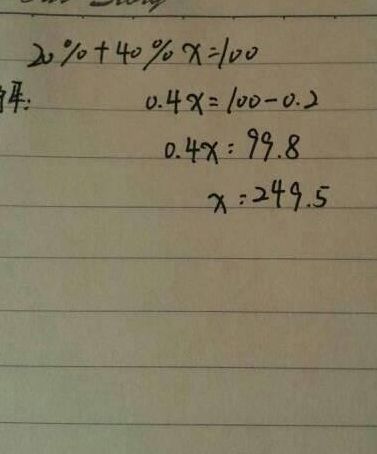 20%+40%x=100
解: 0.4x=100-0.2
0.4x=99.8
x=249.5